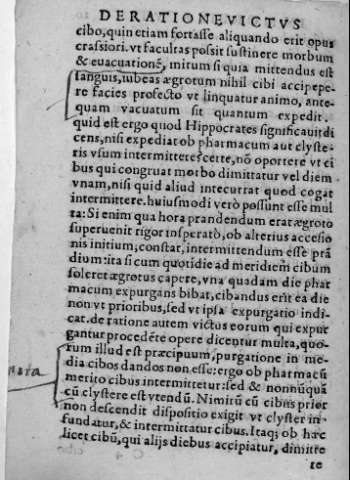 DE RATIONE VICTVS
cibo, quin etiam fortasse aliquando erit opus
crassiori. vt facultas possit sustinere morbum
& euacuationē, mitum si quia mittendus est
sanguis, iubeas ægrotum nihil cibi accipepe-
re facies profecto vt linquatur animo, ante-
quam vacuatum sit quantum expedit.
quid est ergo quod Hippocrates significauit di
cens, nisi expediat ob pharmacum aut clyste-
ris vsum intermittere? certe, nō oportere vt ci
bus qui congruat morbo dimittatur vel diem
vnam, nisi quid aliud intercurrat quod cogat
intermittere. huiusmodi verò possunt esse mul
ta: Si enim qua hora prandendum erat ægroto
superuenit rigor insperatò, ob alterius accesio
nis initium; constat, intermittendum esse prā
dium: ita si cum quotidie ad meridiem cibum
soleret ægrotus capere, vna quadam die phar
macum expurgans bibat, cibandus erit ea die
non vt prioribus, sed vt ipsa expurgatio indi-
cat. de ratione autem victus eorum qui expur
gantur procedēte opere dicentur multa, quo-
rum illud est præcipuum, purgatione in me-
dia cibos dandos non esse: ergo ob pharmacū
merito cibus intermittetur: sed & nonnūquā
cū clystere est vtendū. Nimirū cū cibus prior
non descendit dispositio exigit vt clyster in-
fundatur, & intermittatur cibus. Itaq; ob hæc
licet cibū, qui alijs diebus accipiatur, dimitte
re